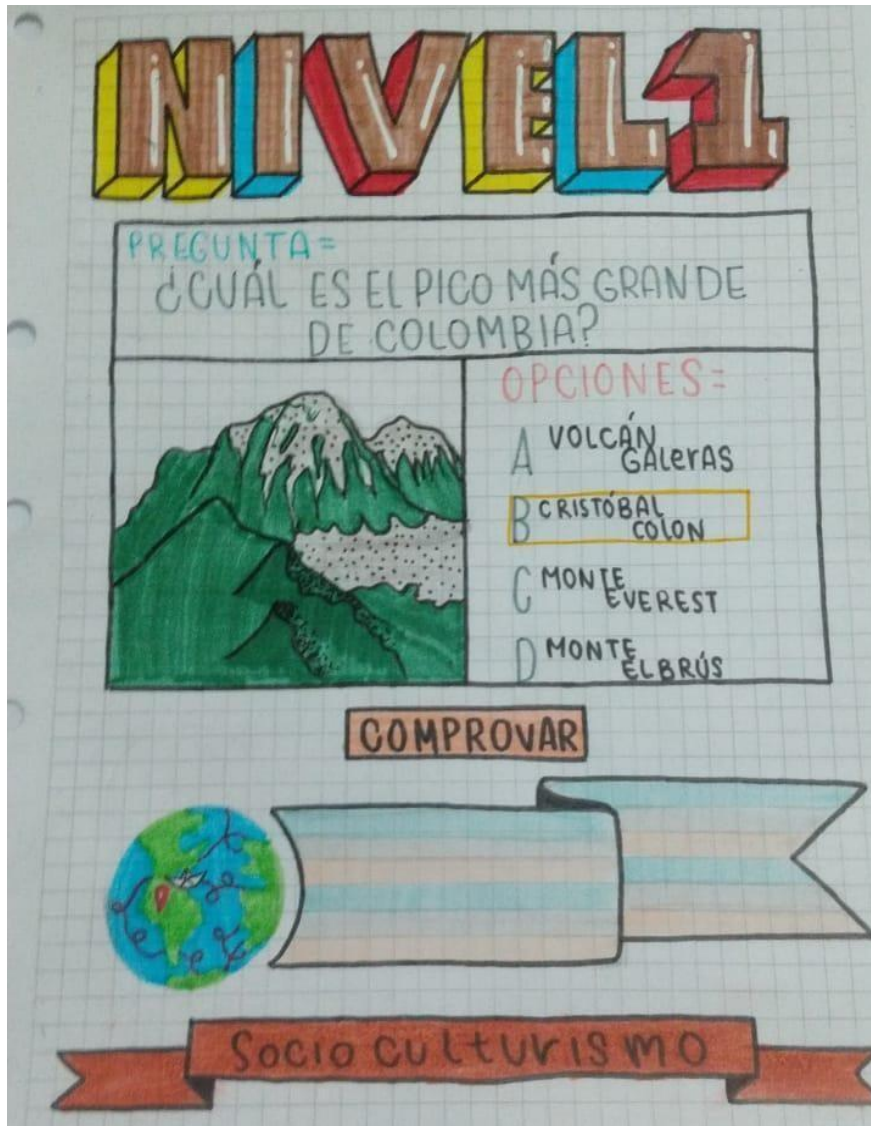 NIVEL 1
PREGUNTA=
¿CUÁL ES EL PICO MÁS GRANDE
DE COLOMBIA?
OPCIONES=
A VOLCÁN
GALerAS
B CRISTÓBAL
COLON
C MONTE
EVEREST
D MONTE
ELBRÚS
COMPROVAR
Socio culturismo